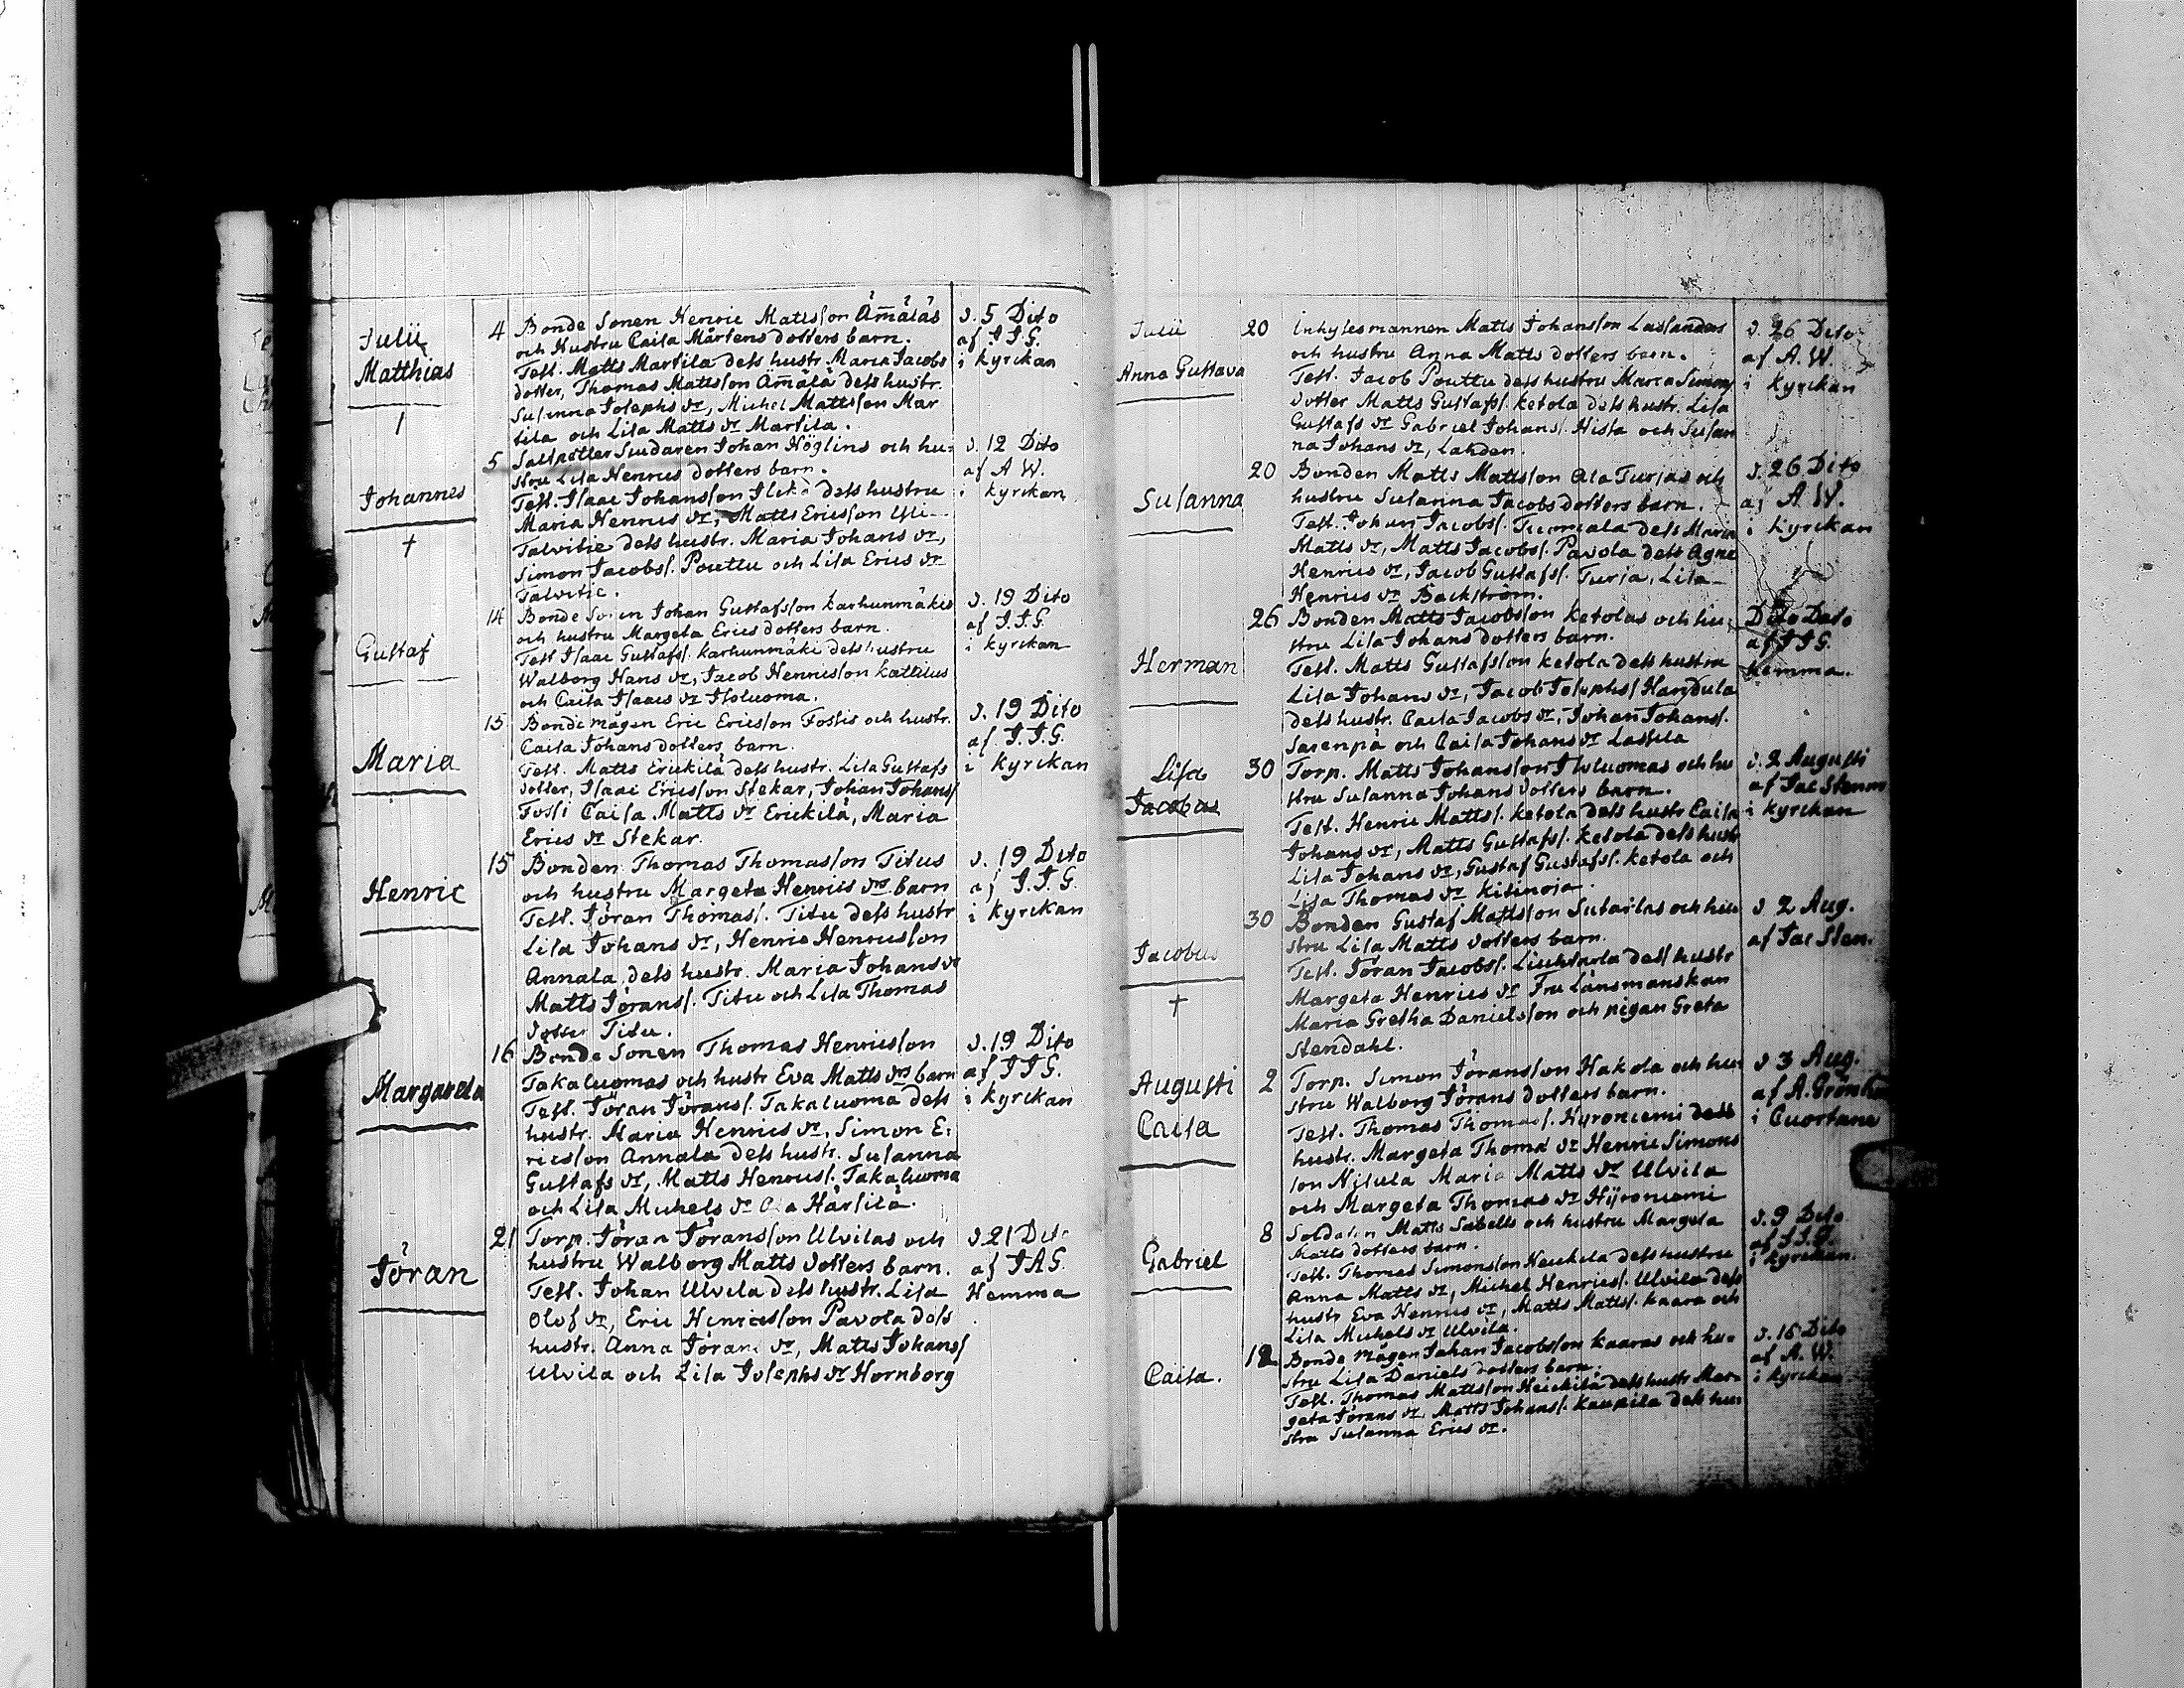 Julii
Matthias
4 Bonde Sonen Henric Mattsson Ämäläs
och Hustru Caisa Mårtens dotters barn.
Test. Matts Marsila dess hustr. Maria Jacobs
dotter, Thomas Mattsson Ämälä dess hustr.
Susanna Josephs dr, Michel Mattsson Mar
sila och Lisa Matts dr Marsila.
d. 5 Dito
af J.J.G.
i kyrckan
Johannes
†
5 Saltpetter Siudaren Johan Höglins och hu=
stru Lisa Henrics dotters barn.
Test. Isaac Johansson dess hustru
Maria Henrics dr, Matts Ericsson Yli-
Talvitie dess hustr. Maria Johans dr,
Simon Jacobss. Pouttu och Lisa Erics dr
Talvitie.
d. 12 Dito
af A W.
i kyrckan
Gustaf
14 Bonde Sonen Johan Gustafsson Karhunmäkis
och hustru Margeta Erics dotters barn.
Test Isaac Gustafss. Karhunmäki dess hustru
Walborg Hans dr, Jacob Henricsson Kattilus
och Caisa Isaacs dr Isoluoma.
d. 19 Dito
af J.J.G.
i kyrckan
Maria
15 Bonde mågen Eric Ericsson Fossis och hustr.
Caisa Johans dotters barn.
Test. Matts Erickilä dess hustr. Lisa Gustafs
dotter, Isaac Ericsson Stekar, Johan Johanss
Fossi Caisa Matts dr Erickilä, Maria
Erics dr Stekar.
d. 19 Dito
af. J.J.G.
i kyrckan
Henric
15 Bonden Thomas Thomasson Titus
och hustru Margeta Henrics drs barn
Test. Jöran Thomass. Titu dess hustr
Lisa Johans dr, Henric Henricsson
Annala dess hustr. Maria Johans dr
Matts Jöranss. Titu och Lisa Thomas
dotter Titu.
d. 19 Dito
af J.J.G.
i kyrckan
Margareta
16 Bonde Sonen Thomas Henricsson
Takaluomas och hustr Eva Matts drs barn
Test. Jöran Jöranss. Takaluoma dess
hustr. Maria Henrics dr, Simon E:
ricsson Annala dess hustr. Susanna
Gustafs dr, Matts Henricss. Takaluoma
och Lisa Michels dr Ala Härsilä.
d. 19 Dito
af J J G.
i kyrckan
Jöran
21 Torp. Jöran Jöransson Ulvilas och
hustru Walborg Matts dotters barn.
Test. Johan Ulvila dess hustr. Lisa
Olof dr, Eric Henricsson Pavola dess
hustr. Anna Jörans dr, Matts Johanss
Ulvila och Lisa Josephs dr Hornborg
d. 21 Dito
af J A G.
Hemma
Julii
Anna Gustava
20 Inhysesmannen Matts Johansson Lassandas
och hustru Anna Matts dotters barn.
Test. Jacob Pouttu dess hustru Maria Simons
dotter Matts Gustafss. Ketola dess hustr. Lisa
Gustafs dr Gabriel Johans. Hissa och Susan
na Johans dr, Lahden.
d. 26 Dito
af A. W.
i kyrckan
Susanna
20 Bonden Matts Mattsson Ala Turjas och
hustru Susanna Jacobs dotters barn.
Test. Johan Jacobss. Tuomala dess Maria
Matts dr, Matts Jacobss. Pavola dess Agne
Henrics dr, Jacob Gustafss. Turja, Lisa
Henrics dr Backström.
d. 26 Dito
af A W.
i kyrckan
Herman
26 Bonden Matts Jacobsson Ketolas och hu:
stru Lisa Johans dotters barn.
Test. Matts Gustafsson Ketola dess hustru
Lisa Johans dr, Jacob Josephss Handula
dess hustr. Caisa Jacobs dr, Johan Johanss.
Sarenpä och Caisa Johans dr Lassila
Dito Dato
af J J G.
Hemma.
Lisa
Jacobus
30 Torp. Matts Johansson Isoluomas och hu
stru Susanna Johans dotters barn.
Test. Henric Mattss. Ketola dess hustr Caisa
Johans dr, Matts Gustafss. Ketola dess hustr
Lisa Johans dr, Gustaf Gustafss. Ketola och
Lisa Thomas dr Kitinoja.
d. 2 Augusti
af Jac Stenm
i kyrckan
Jacobus
†
30 Bonden Gustaf Mattsson Sutarlas och hu
stru Lisa Matts dotters barn.
Test. Jöran Jacobss. Liuhtarla dess hustr
Margeta Henrics dr Fru Länsmanskan
Maria Gretha Danielsson och pigan Greta
Stendahl.
d. 2 Aug.
af Jac Sten.
Augusti
Caisa
2 Torp. Simon Jöransson Hakola och hu:
stru Walborg Jörans dotters barn.
Test. Thomas Thomass. Hyroniemi dess
hustr. Margeta Thomas dr Henric Simons
son Nisula Maria Matts dr Ulvila
och Margeta Thomas dr Hyroniemi
d. 3 Aug.
i Cuortane
Gabriel
8 Soldaten Matts Sabells och hustru Margeta
Matts dotters barn.
Test. Thomas Simonsson Heickilä dess hustru
Anna Matts dr, Michel Henricss. Ulvila dess
hustr Eva Henrics dr, Matts Mattss. Kaara och
Lisa Michels dr Ulvila.
d. 9 Dito
af J.J.G.
i kyrckan.
Caisa.
12 Bonde mågen Johan Jacobsson Kaaras och hu=
stru Lisa Daniels dotters barn.
Test. Thomas Mattsson Heickilä dess hustr Mar-
geta Jörans dr Matts Johanss. Kaupila dess hu:
stru Susanna Erics dr.
d. 15 Dito
af A. W.
i kyrckan